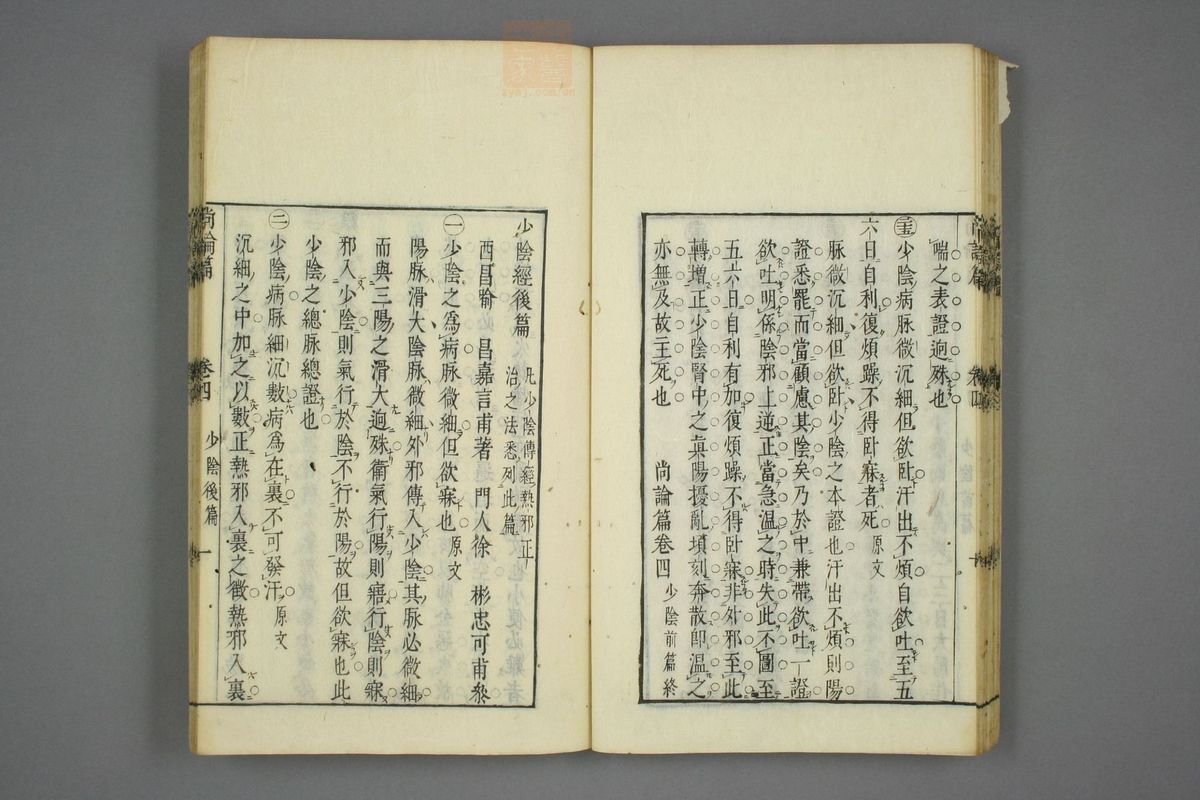 喘之表證迥殊也
㊄少陰病脉微沉細但欲臥汗出不煩自欲吐至五
六日自利復煩躁不得臥寐者死 原文
脉微沉細但欲臥少陰之本證也汗出不煩則陽
證悉罷而當顧慮其陰矣乃於中兼帶欲吐一證
欲吐明係陰邪上逆正當急溫之時失此不圖至
五六日自利有加復煩躁不得臥寐非外邪至此
轉增正少陰腎中之眞陽擾亂頃刻奔散卽溫之
亦無及故主死也
尚論篇卷四 少陰前篇終
少陰經後篇 凡少陰傳經熱邪正
治之法悉列此篇
西昌喻 昌嘉言甫著 門人徐 彬忠可甫叅
㊀少陰之爲病脉微細但欲寐也 原文
陽脉滑大陰脉微細外邪傳入少陰其脉必微細
而與三陽之滑大迥殊衛氣行陽則寤行陰則寐
邪入少陰則氣行於陰不行於陽故但欲寐也此
少陰之總脉總證也
㊁少陰病脉細沉數病爲在裏不可發汗 原文
沉細之中加之以數正熱邪入裏之徵熱邪入裏
尚論篇 卷四 少陰後篇 一
zysj.com.cn